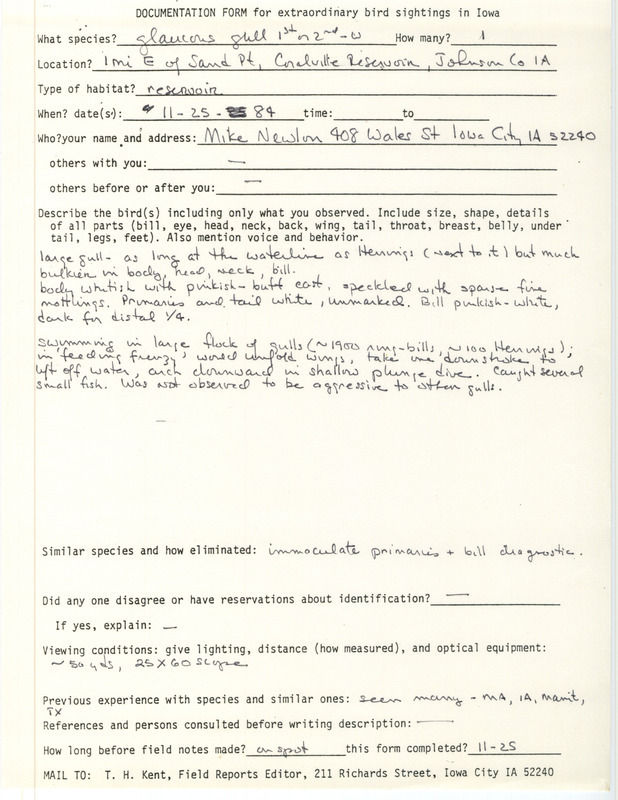 DOCUMENTATION FORM for extraordinary bird sightings in Iowa
What species? glaucous gull 1st or 2nd-w How many? 1
Location? 1 mi E of Sand Pt, Coralville Reservoir, Johnson Co IA
Type of habitat? reservoir
When? date(s): 11-25-84 time: to
Who? your name and address: Mike Newlon 408 Wales St Iowa City IA 52240
others with you: —
others before or after you: —
Describe the bird(s) including only what you observed. Include size, shape, details
of all parts (bill, eye, head, neck, back, wing, tail, throat, breast, belly, under
tail, legs, feet). Also mention voice and behavior.
large gull - as long at the waterline as Herrings (next to it) but much
bulkier in body, head, neck, bill.
body whitish with pinkish-buff cast, speckled with sparse fine
mottlings. Primaries and tail white, unmarked. Bill pinkish-white,
dark for distal 1/4.
swimming in large flock of gulls (~1900 ring-bills, ~100 Herrings);
in 'feeding frenzy' would unfold wings, take one downstroke to
lift off water, arch downward in shallow plunge dive. Caught several
small fish. Was not observed to be aggressive to other gulls.
—
Similar species and how eliminated: immaculate primaries + bill diagnostic.
Did any one disagree or have reservations about identification? —
If yes, explain: —
Viewing conditions: give lighting, distance (how measured), and optical equipment:
~50 yds, 25X60 scope
Previous experience with species and similar ones: seen many - MA, IA, Manit,
TX
References and persons consulted before writing description: —
How long before field notes made? on spot this form completed? 11-25
MAIL TO: T. H. Kent, Field Reports Editor, 211 Richards Street, Iowa City IA 52240